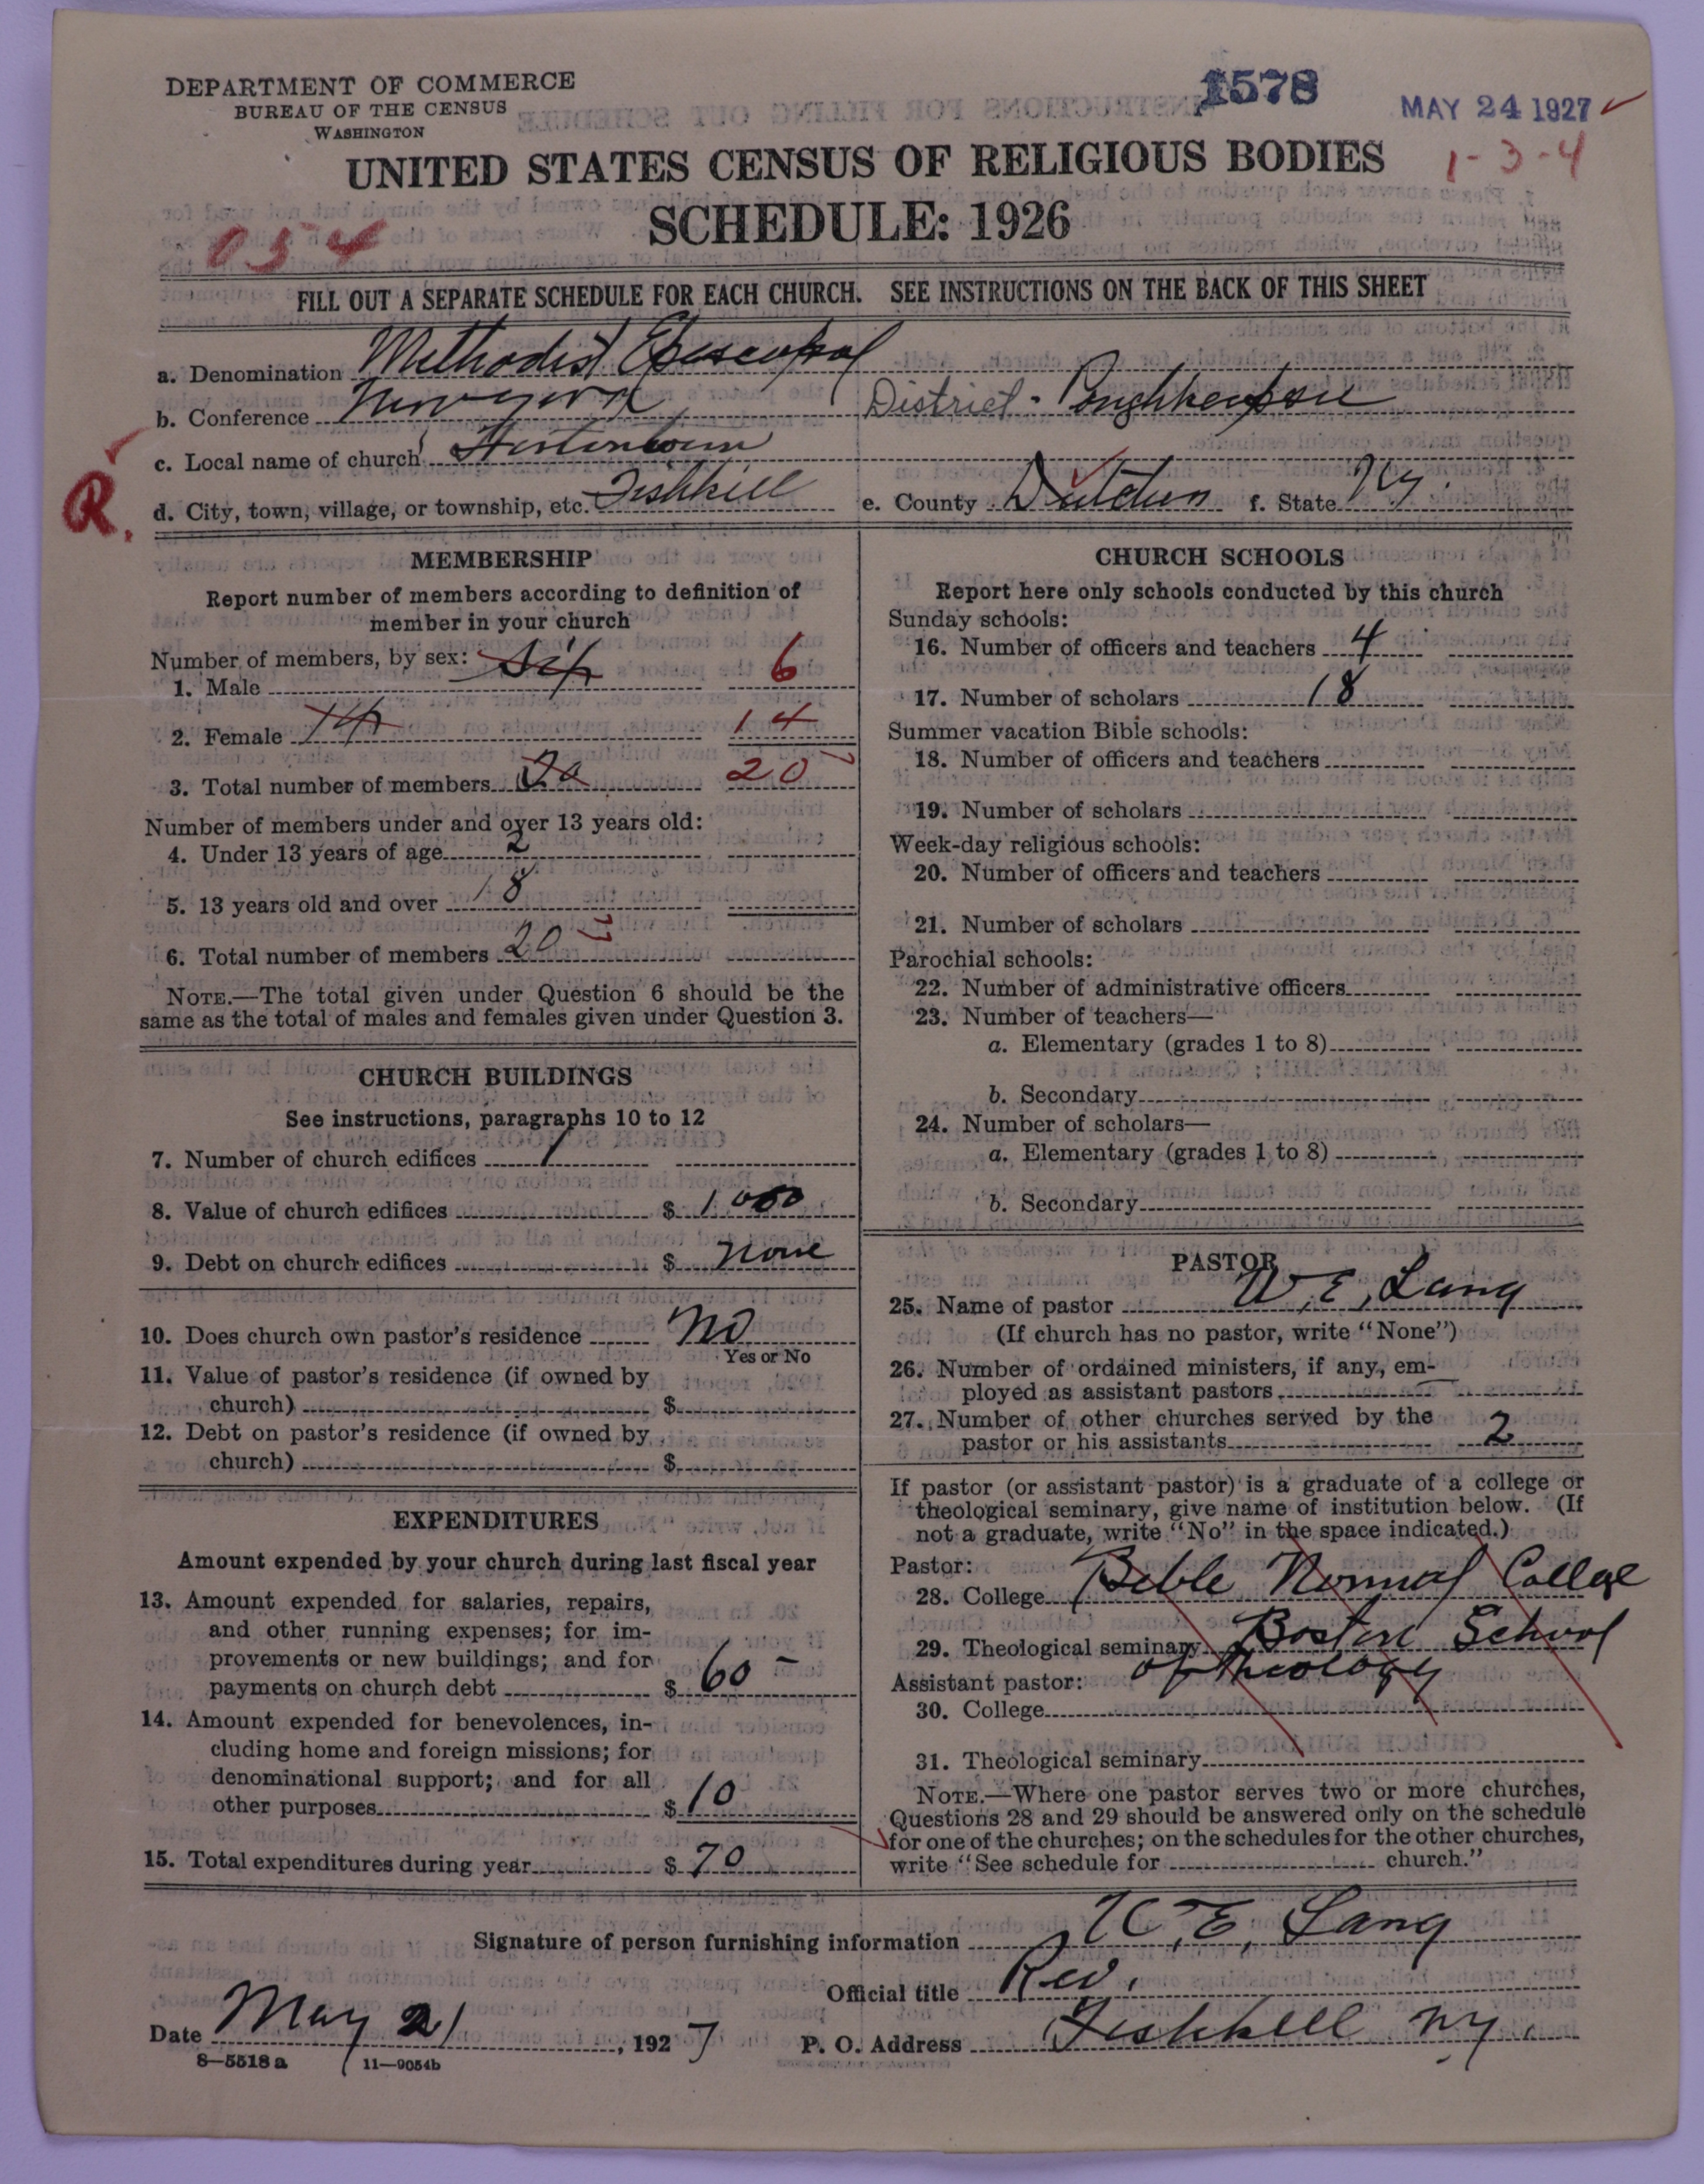 DEPARTMENT OF COMMERCE
BUREAU OF THE CENSUS
WASHINGTON
1578
MAY 24 1927
1-3-4
UNITED STATES CENSUS OF RELIGIOUS BODIES
SCHEDULE: 1926
054
FILL OUT A SEPARATE SCHEDULE FOR EACH CHURCH. SEE INSTRUCTIONS ON THE BACK OF THIS SHEET
a. Denomination Methodist Episcopal
b. Conference New York District - Poughkeepsie
c. Local name of church
R.
d. City, town, village, or township, etc. Fishkill e. County Dutchess f. State N.Y.
MEMBERSHIP
Report number of members according to definition of
member in your church
Number of members, by sex:
1. Male Six 6
2. Female 14 14
3. Total number of members 20 20
Number of members under and over 13 years old:
4. Under 13 years of age 2
5. 13 years old and over 18
6. Total number of members 20
NOTE.—The total given under Question 6 should be the
same as the total of males and females given under Question 3.
CHURCH BUILDINGS
See instructions, paragraphs 10 to 12
7. Number of church edifices 1
8. Value of church edifices $ 1000
9. Debt on church edifices $ none
10. Does church own pastor's residence No
Yes or No
11. Value of pastor's residence (if owned by
church) $
12. Debt on pastor's residence (if owned by
church) $
EXPENDITURES
Amount expended by your church during last fiscal year
13. Amount expended for salaries, repairs,
and other running expenses; for im-
provements or new buildings; and for
payments on church debt $ 60 -
14. Amount expended for benevolences, in-
cluding home and foreign missions; for
denominational support; and for all
other purposes $ 10
15. Total expenditures during year $ 70
CHURCH SCHOOLS
Report here only schools conducted by this church
Sunday schools:
16. Number of officers and teachers 4
17. Number of scholars 18
Summer vacation Bible schools:
18. Number of officers and teachers
19. Number of scholars
Week-day religious schools:
20. Number of officers and teachers
21. Number of scholars
Parochial schools:
22. Number of administrative officers
23. Number of teachers—
a. Elementary (grades 1 to 8)
b. Secondary
24. Number of scholars—
a. Elementary (grades 1 to 8)
b. Secondary
PASTOR
25. Name of pastor W. E. Lang
(If church has no pastor, write "None")
26. Number of ordained ministers, if any, em-
ployed as assistant pastors
27. Number of other churches served by the
pastor or his assistants 2
If pastor (or assistant pastor) is a graduate of a college or
theological seminary, give name of institution below. (If
not a graduate, write "No" in the space indicated.)
Pastor:
28. College Bible Normal College
29. Theological seminary Boston School
of Theology
Assistant pastor:
30. College
31. Theological seminary
NOTE.—Where one pastor serves two or more churches,
Questions 28 and 29 should be answered only on the schedule
for one of the churches; on the schedules for the other churches,
write "See schedule for church."
Signature of person furnishing information W. E. Lang
Official title Rev.
Date May 21, 1927 P. O. Address Fishkill N.Y.
8—5518a 11—9054b